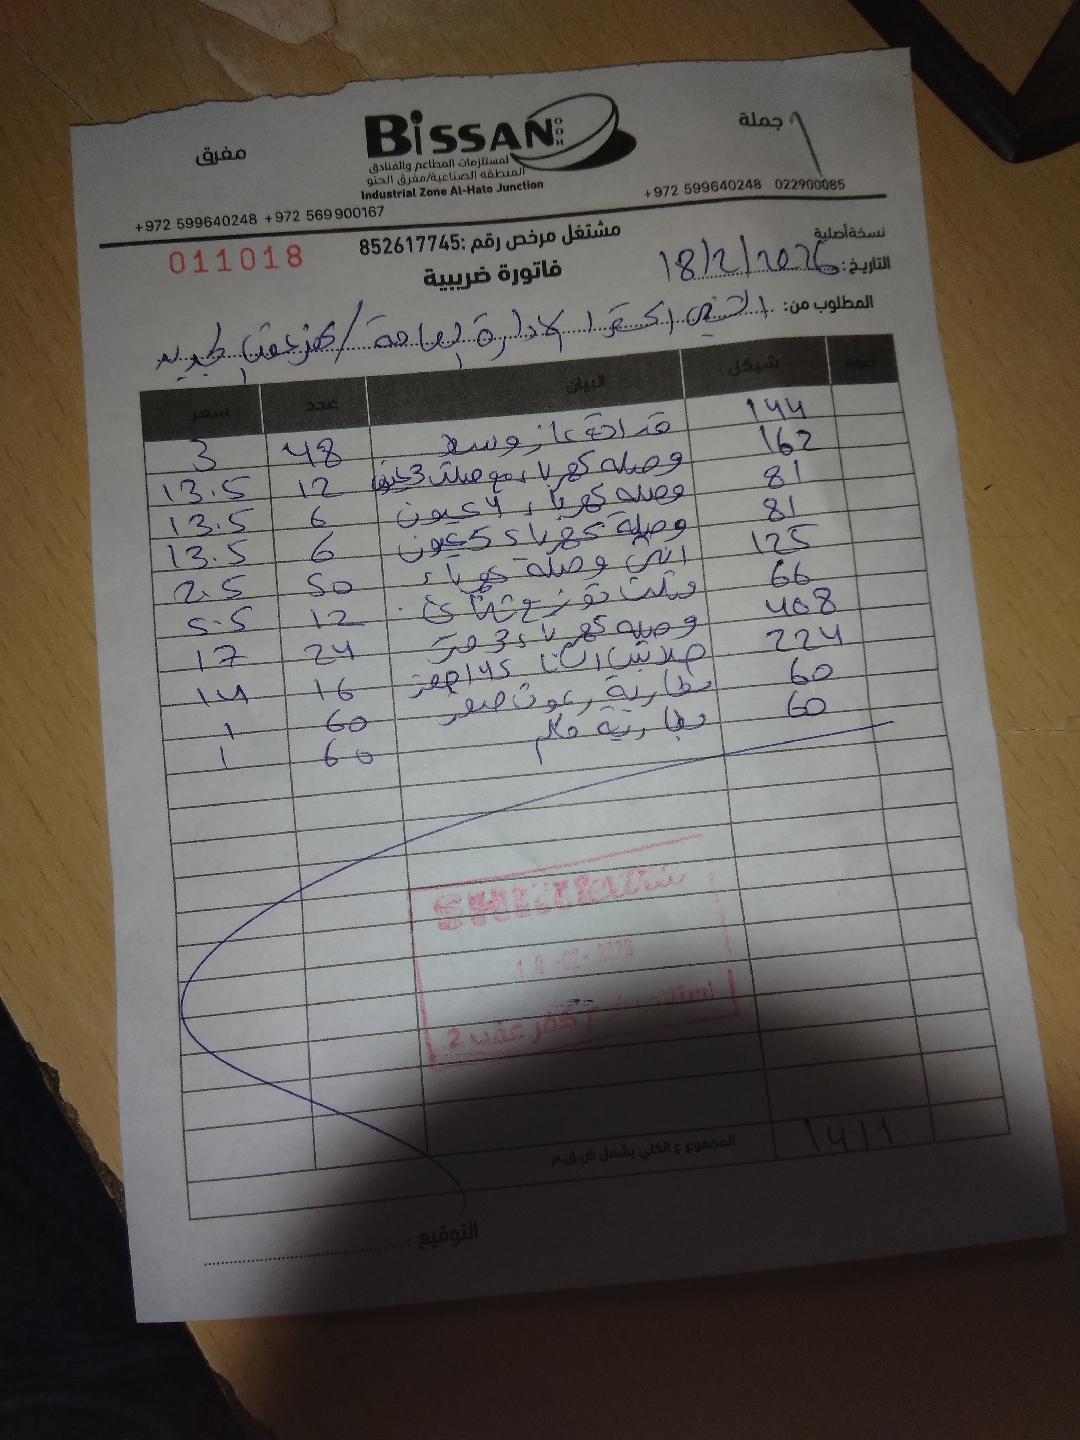 جملة
مفرق
BISSAN
HOOD
لمستلزمات المطاعم والفنادق
المنطقه الصناعية/مفرق الحتو
Industrial Zone Al-Hato Junction
+972 599640248 022900085
+972 599640248 +972 569900167
نسخة أصلية
مشتغل مرخص رقم :852617745
011018
التاريخ: 18/2/2026
فاتورة ضريبية
المطلوب من: الادارة العامة /
شيكل البيان عدد سعر
144 قداحة غاز وسط 48 3
162 وصله كهرباء 3 12 13.5
81 وصله كهرباء 4 عيون 6 13.5
81 وصلة كهرباء 5 عيون 6 13.5
125 انثى وصلة كهرباء 50 2.5
66 12 5.5
408 وصله كهرباء 3 متر 24 17
224 16 14
60 بطارية صفر 60 1
60 بطارية قلم 60 1
2 كفر عقب
المجموع الكلي يشمل ض.ق.م 1411
التوقيع :